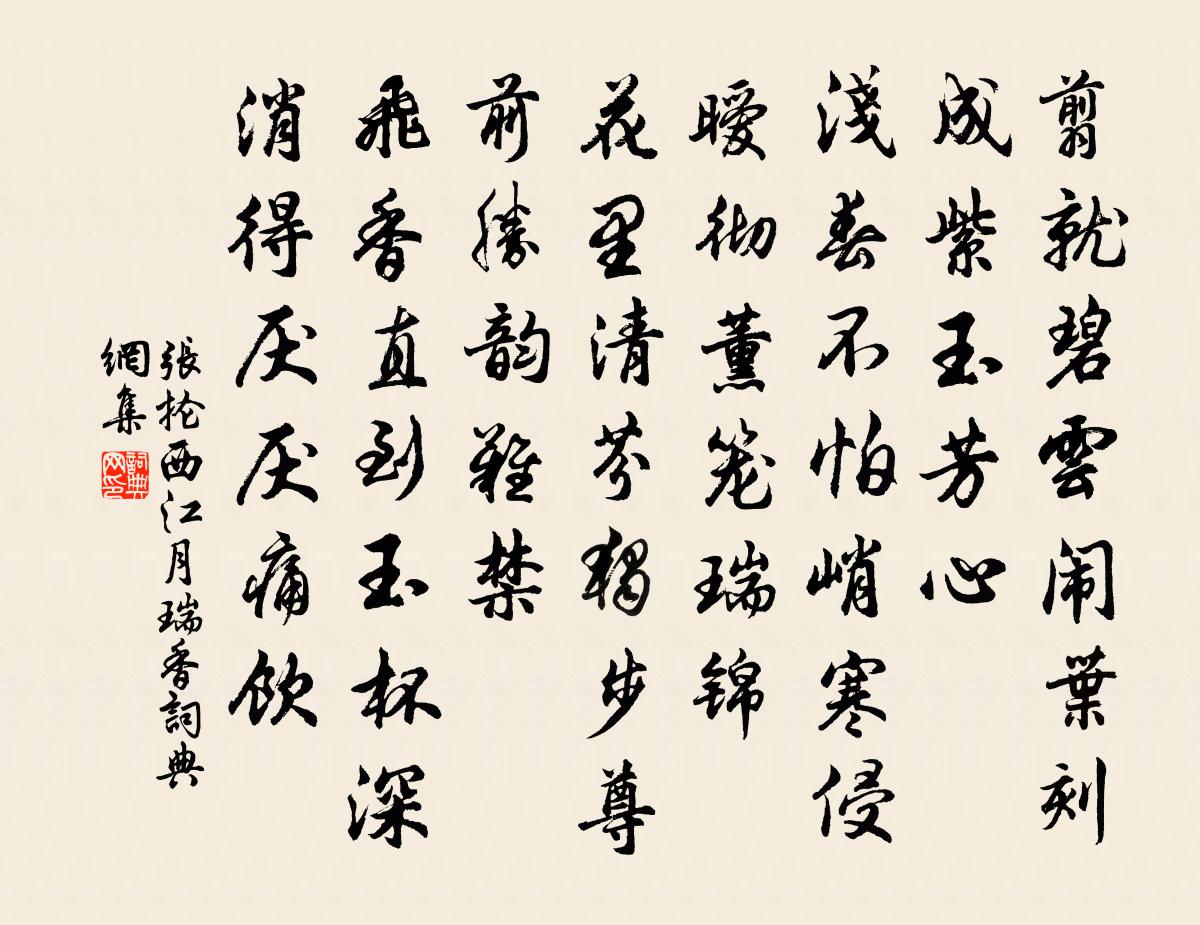 翦就碧雲闹葉刻
成紫玉芳心
淺春不怕峭寒侵
曖彻薰笼瑞锦
花里清芬獨步尊
前勝韵難禁
飛香直到玉杯深
消得厌厌痛飲
張抡西江月瑞香詞典
網集
詞典
网